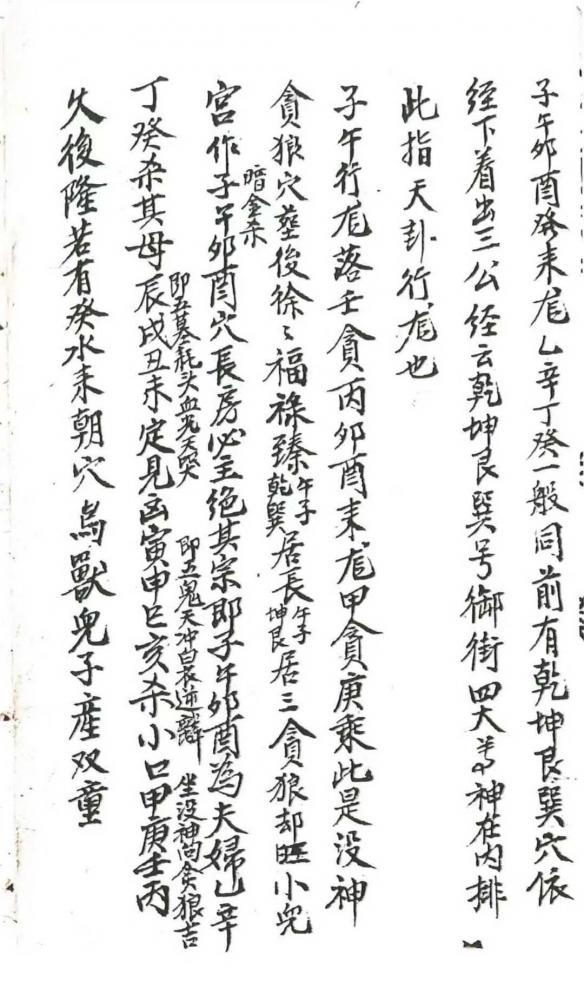 子午卯酉癸未龙乙辛丁癸一般同前有乾坤艮巽穴依
经下着出三公经云乾坤艮巽号御街四大尊神在内排
此指天卦行龙也
子午行龙落壬贪丙卯酉来龙甲贪庚乘此是没神
贪狼穴葬后徐々福禄臻午子乾巽居长午子坤艮居三贪狼却旺小儿
暗金杀
宫作子午卯酉穴長房必主绝其宗即子午卯酉為夫婦乙辛
即五墓耗头血光天哭 即五鬼天冲白衣逆 坐没神向贪狼吉
丁癸杀其母辰戌丑未定見凶寅申巳亥杀小口甲庚壬丙
久後隆若有癸水来朝穴鸟獸兒子産双童